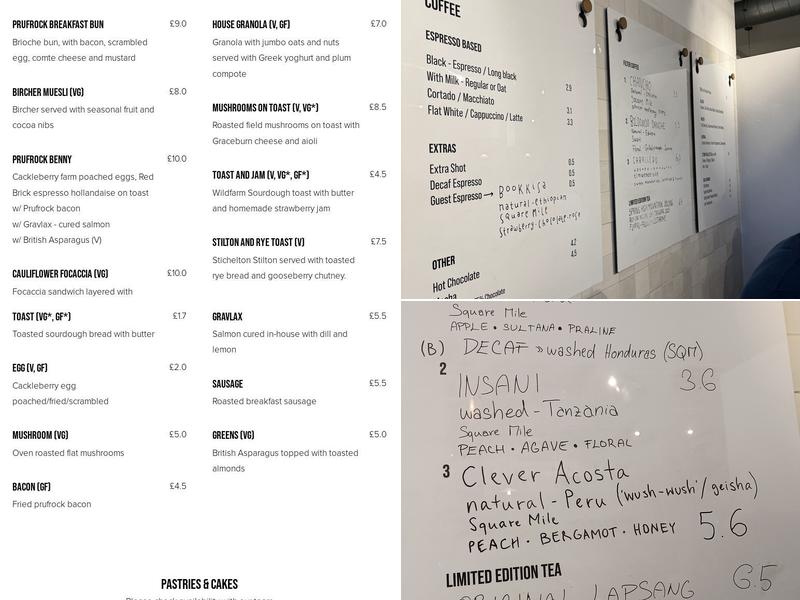 PRUFROCK BREAKFAST BUN £9.0
Brioche bun, with bacon, scrambled
egg, comte cheese and mustard
BIRCHER MUESLI (VG) £8.0
Bircher served with seasonal fruit and
cocoa nibs
PRUFROCK BENNY £10.0
Cackleberry farm poached eggs, Red
Brick espresso hollandaise on toast
w/ Prufrock bacon
w/ Gravlax - cured salmon
w/ British Asparagus (V)
CAULIFLOWER FOCACCIA (VG) £10.0
Focaccia sandwich layered with
TOAST (VG*, GF*) £1.7
Toasted sourdough bread with butter
EGG (V, GF) £2.0
Cackleberry egg
poached/fried/scrambled
MUSHROOM (VG) £5.0
Oven roasted flat mushrooms
BACON (GF) £4.5
Fried prufrock bacon
HOUSE GRANOLA (V, GF) £7.0
Granola with jumbo oats and nuts
served with Greek yoghurt and plum
compote
MUSHROOMS ON TOAST (V, VG*) £8.5
Roasted field mushrooms on toast with
Graceburn cheese and aioli
TOAST AND JAM (V, VG*, GF*) £4.5
Wildfarm Sourdough toast with butter
and homemade strawberry jam
STILTON AND RYE TOAST (V) £7.5
Stichelton Stilton served with toasted
rye bread and gooseberry chutney.
GRAVLAX £5.5
Salmon cured in-house with dill and
lemon
SAUSAGE £5.5
Roasted breakfast sausage
GREENS (VG) £5.0
British Asparagus topped with toasted
almonds
PASTRIES & CAKES
COFFEE
ESPRESSO BASED
Black - Espresso / Long black
With Milk - Regular or Oat 2.9
Cortado / Macchiato
Flat White / Cappuccino / Latte 3.1
3.3
EXTRAS
Extra Shot 0.5
Decaf Espresso 0.5
Guest Espresso → BOOKKISA 0.5
natural-ethiopian
square mile
strawberry-chocolate-rose
OTHER 4.2
Hot Chocolate 4.5
FILTER COFFEE
LIMITED EDITION TEA
Square Mile
APPLE • SULTANA • PRALINE
(B) DECAF » washed Honduras (SQM)
2 INSANI 3.6
washed - Tanzania
Square Mile
PEACH • AGAVE • FLORAL
3 Clever Acosta
natural - Peru ('wush-wush'/geisha)
Square Mile
PEACH • BERGAMOT • HONEY 5.6
LIMITED EDITION TEA
ORIGINAL LAPSANG 6.5